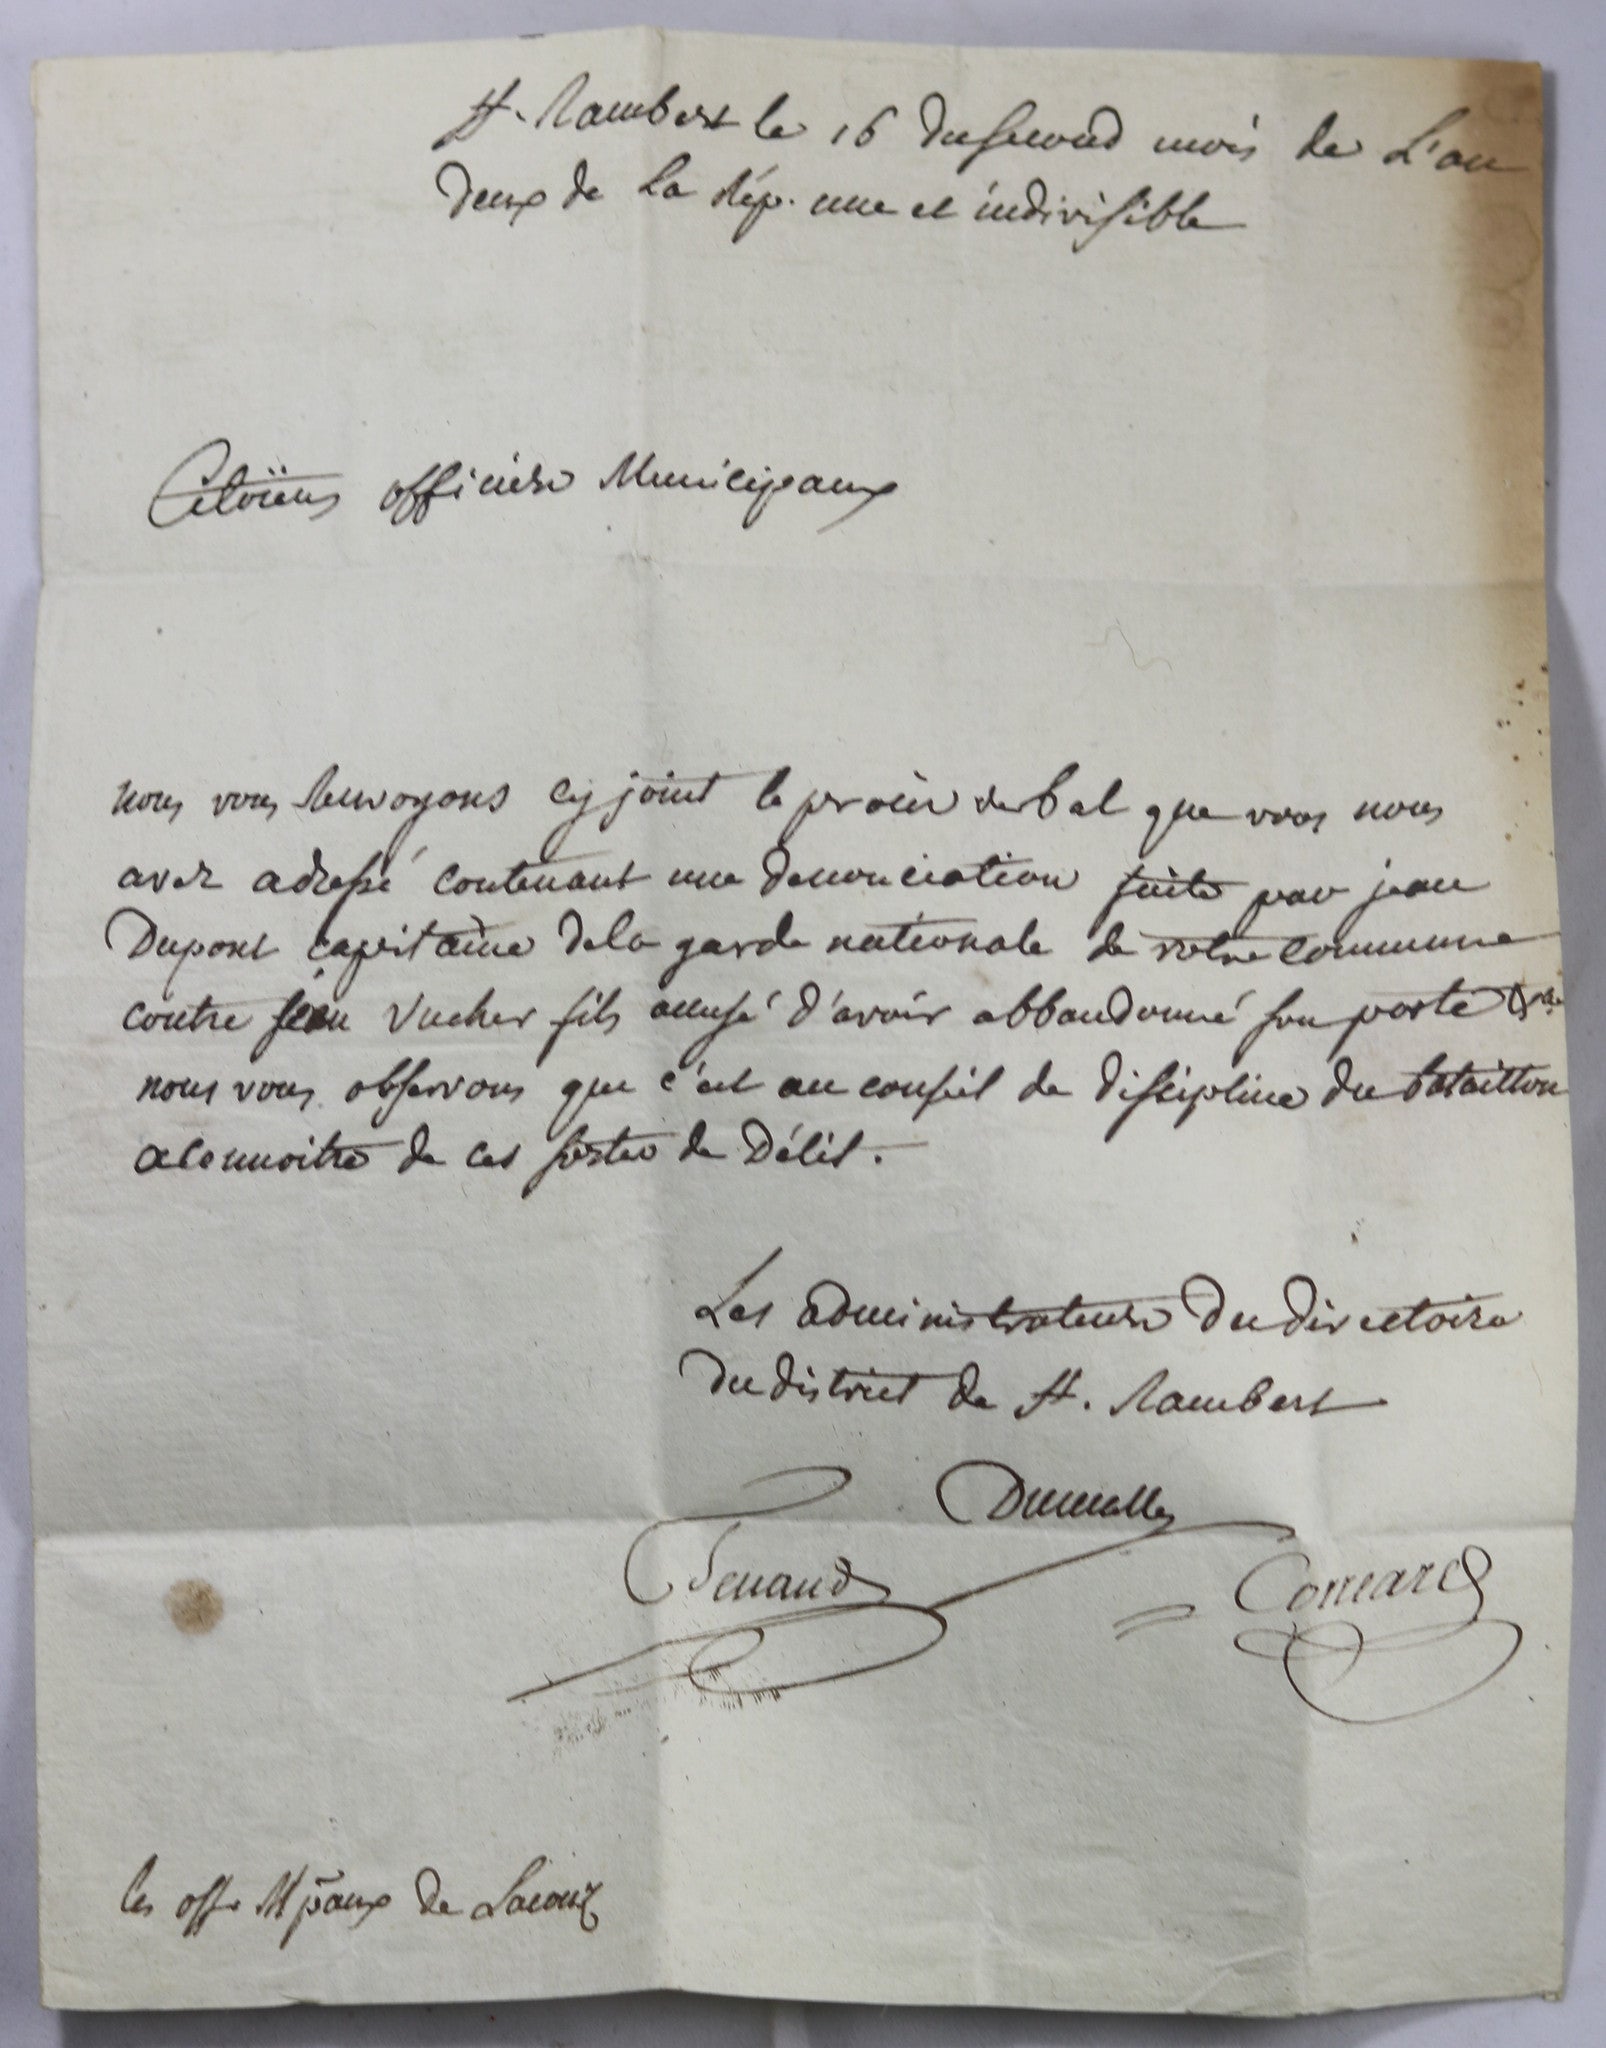 St. Rambert le 16 du second mois de L'an
deux de La Rép. une et indivisible
Citoïens officiers Municipaux
nous vous renvoyons cy joint le procès verbal que vous nous
avez adressé contenant une denonciation faite par jean
Dupont capitaine de la garde nationale de votre commune
contre jean Vucher fils accusé d'avoir abbandonné son poste &
nous vous observons que c'est au conseil de discipline du bataillon
a connoitre de ces sortes de Délit.
Les administrateurs du directoire
du district de St. Rambert
Tenand
les off. Mpaux de